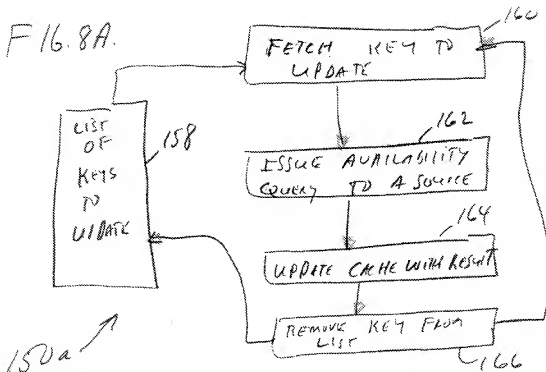 FIG.8A.
160
FETCH KEY TO
UPDATE
LIST
OF
KEYS
TO
UPDATE
158
162
ISSUE AVAILABILITY
QUERY TO A SOURCE
164
UPDATE CACHE WITH RESULT
REMOVE KEY FROM
LIST
166
150a